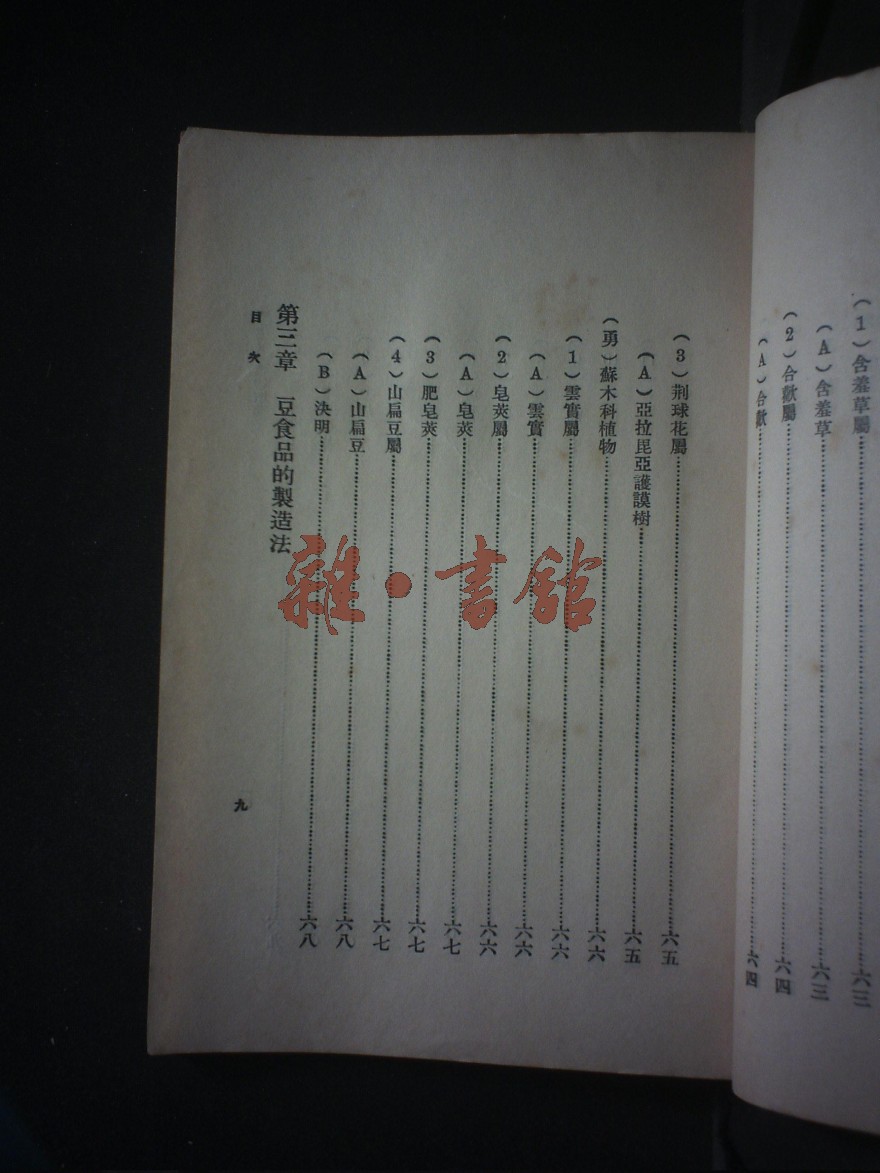 (1)含羞草屬……六三
(A)含羞草……六三
(2)合歡屬……六四
(A)合歡……六四
(3)荆球花屬……六五
(A)亞拉毘亞護謨樹……六五
(勇)蘇木科植物……六六
(1)雲實屬……六六
(A)雲實……六六
(2)皂莢屬……六六
(A)皂莢……六七
(3)肥皂莢……六七
(4)山扁豆屬……六七
(A)山扁豆……六八
(B)決明……六八
第三章 豆食品的製造法
目次
九
雜·書館